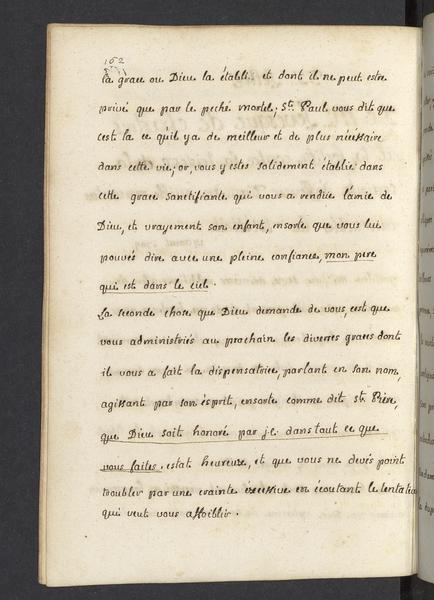 162
la grace ou Dieu la établi et dont il ne peut estre
privé que par le peché mortel; St. Paul vous dit que
c'est la ce qu'il y a de meilleur et de plus nécéssaire
dans cette vie; or, vous y estes solidement établie dans
cette grace sanctifiante qui vous a rendüe l'amie de
Dieu, et vrayement son enfant, ensorte que vous lui
pouvés dire avec une pleine confiance, mon pere
qui est dans le ciel.
La seconde chose que Dieu demande de vous, c'est que
vous administriés au prochain les diverses graces dont
il vous a fait la dispensatrice, parlant en son nom,
agissant par son ésprit, ensorte comme dit st. Pière,
que Dieu soit honoré par j.c. dans tout ce que
vous faites. estat heureux, et que vous ne devés point
troubler par une crainte éxcessive en écoutant le tentateur
qui veut vous affoiblir.